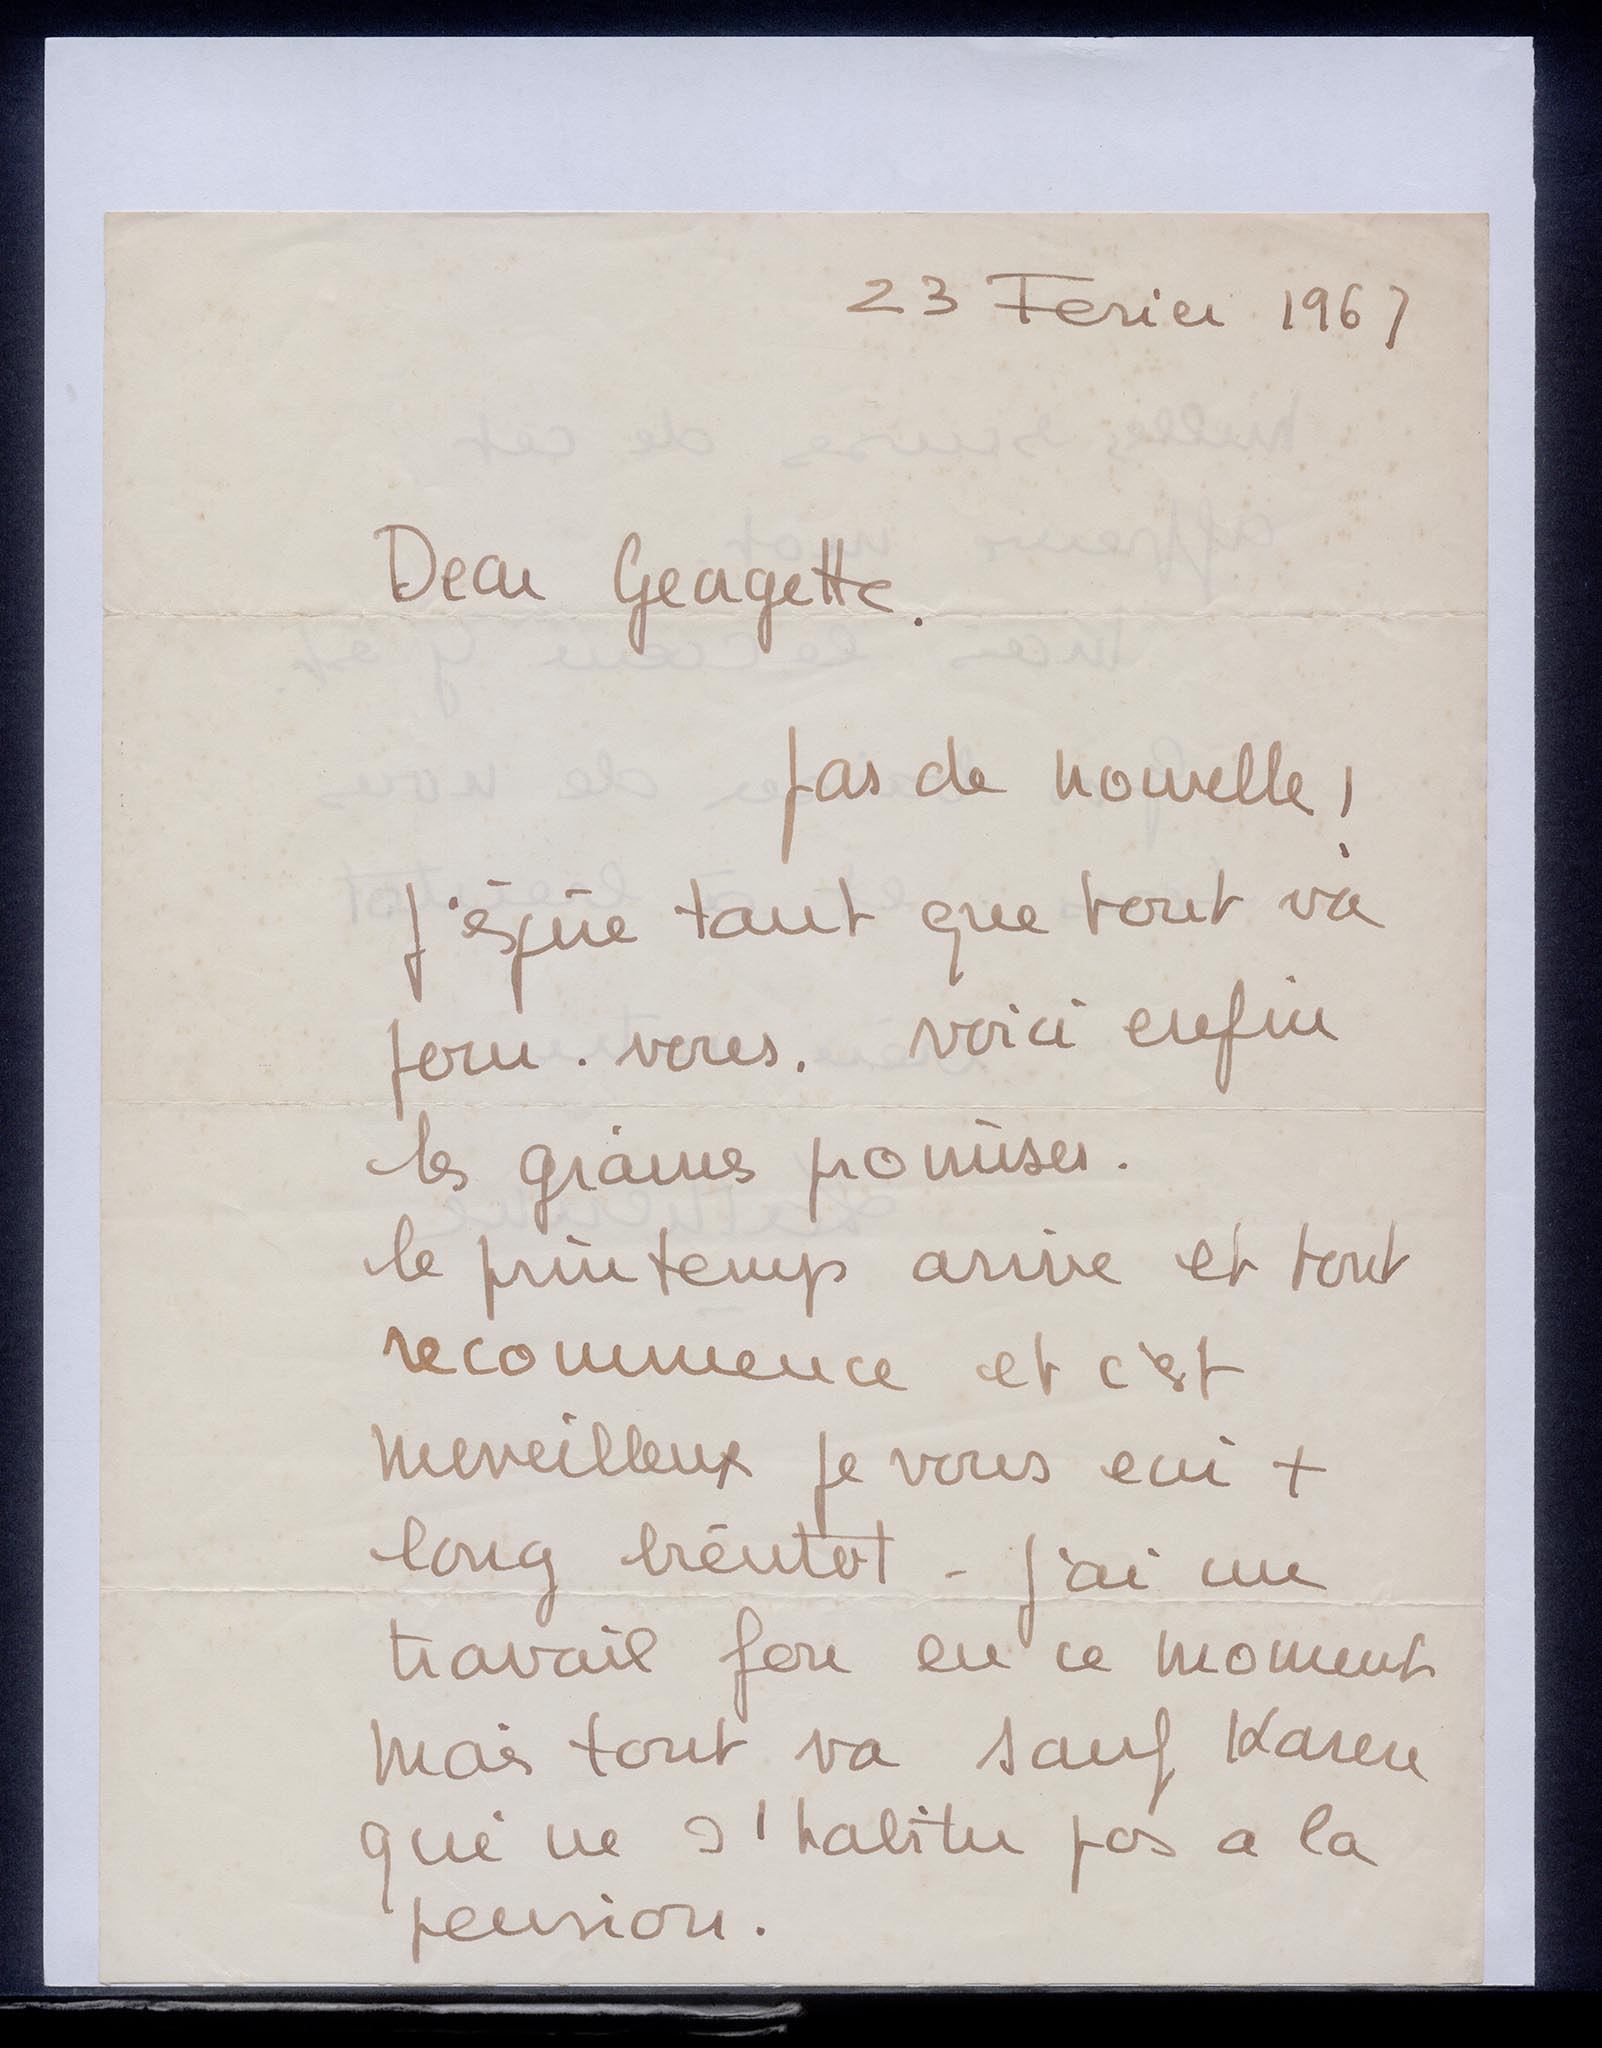 23 Ferier 1967
Dear Georgette.
pas de nouvelle !
J'éspère tant que tout va
pour. vous. voici enfin
les graines promises.
le printemps arrive et tout
recommence et c'est
merveilleux je vous ecri +
long bientot - j'ai un
travail fou en ce moment
mais tout va sauf Karen
qui ne s'habitu pas a la
pension.